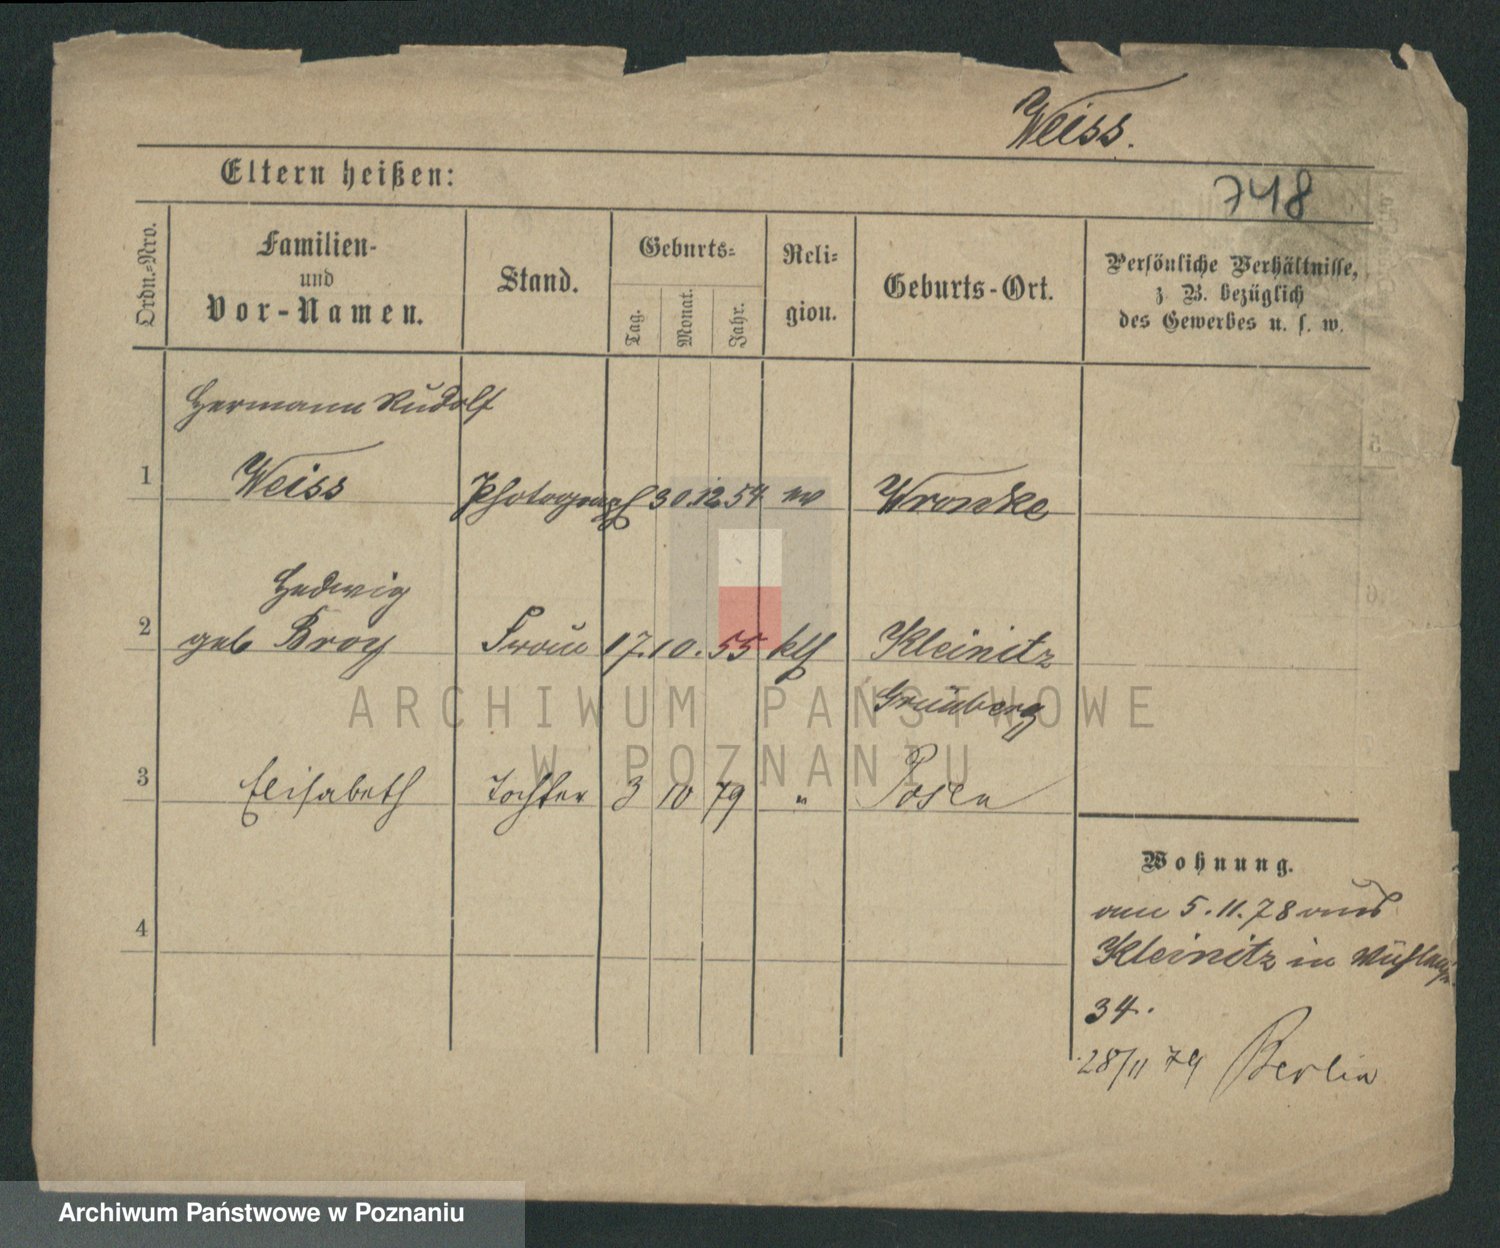 Weiss.
Eltern heißen:
748
Ordn.=Nro.
Familien-
und
Vor-Namen.
Stand.
Geburts=
Tag.
Monat.
Jahr.
Reli=
gion.
Geburts-Ort.
Persönliche Verhältnisse,
z. B. bezüglich
des Gewerbes u. s. w.
Hermann Rudolf
1 Weiss Photograph 30. 12 54 ev Wronke
Hedwig
2 geb Broy Frau 17. 10. 55 kth Kleinitz
Grünberg
3 Elisabeth Tochter 3 10 79 " Posen
4
Wohnung.
am 5. 11. 78 aus
Kleinitz in
34.
28/11 79 Berlin
ARCHIWUM PAŃSTWOWE
W POZNANIU
Archiwum Państwowe w Poznaniu